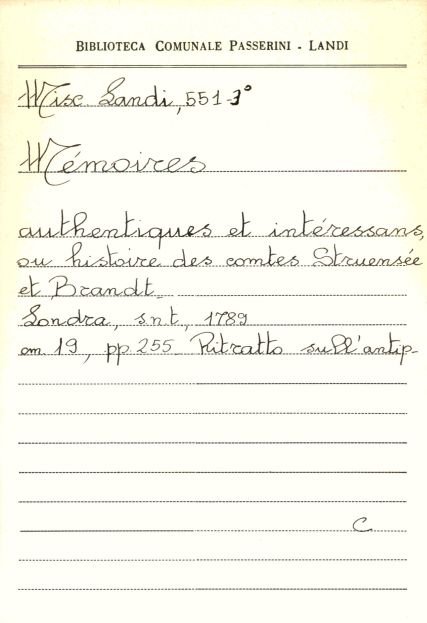 BIBLIOTECA COMUNALE PASSERINI - LANDI
Misc Landi, 551-3°
Mémoires
authentiques et intéressans,
ou histoire des comtes Struensée
et Brandt_
Londra, s.n.t, 1789
cm 19, pp 255_ Ritratto sull'antip-
C